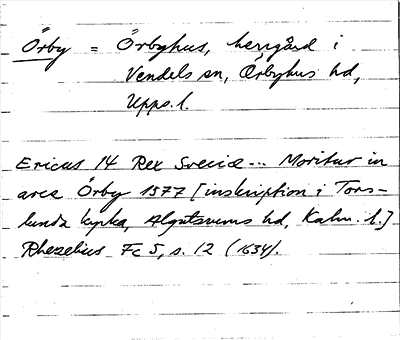 Örby = Örbyhus, herrgård i
Vendels sn, Örbyhus hd,
Upps. l.
Ericus 14 Rex Sveciæ... Moritur in
arce Örby 1577 [inskription i Tors-
lunda kyrka, Algutsrums hd, Kalm. l.]
Rhezelius Fc 5, s. 12 (1634).